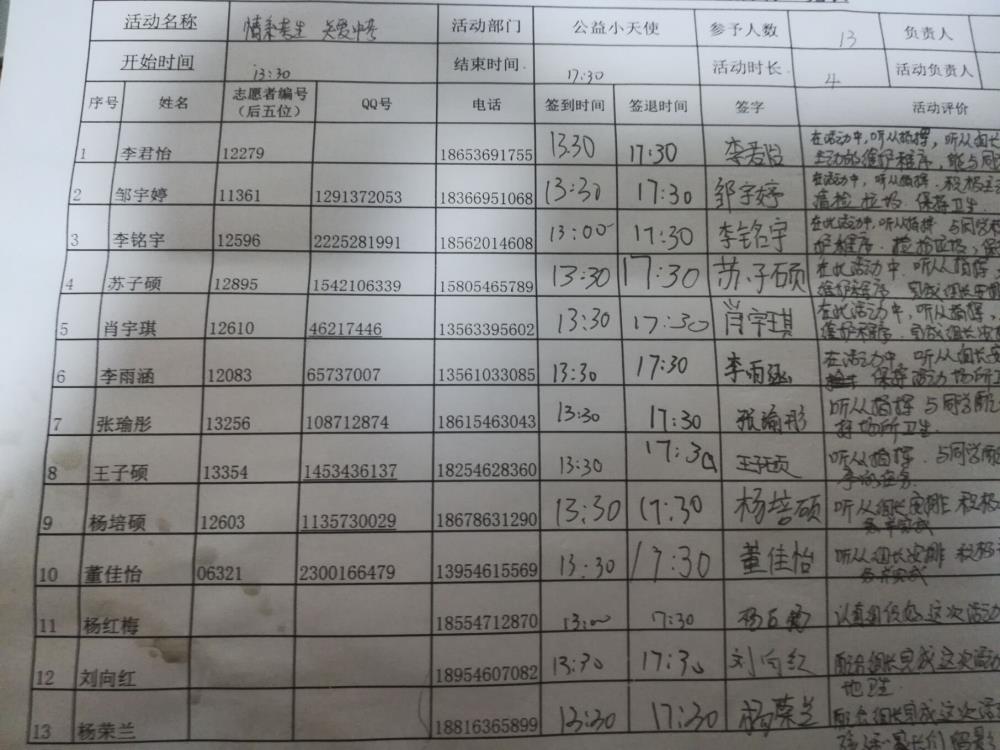 活动名称 情系考生 关爱中考 活动部门 公益小天使 参予人数 13 负责人
开始时间 13:30 结束时间 17:30 活动时长 4 活动负责人
序号 姓名 志愿者编号（后五位） QQ号 电话 签到时间 签退时间 签字 活动评价
1 李君怡 12279 18653691755 13:30 17:30 李君怡 在活动中,听从指挥,听从组长
主动的维护秩序,能与同
2 邹宇婷 11361 1291372053 18366951068 13:30 17:30 邹宇婷 在活动中,听从指挥.积极主
捡垃圾.保持卫生.
3 李铭宇 12596 2225281991 18562014608 13:00 17:30 李铭宇 在此活动中,听从指挥,与同学积
护秩序.捡拾垃圾,保
4 苏子硕 12895 1542106339 15805465789 13:30 17:30 苏子硕 在此活动中.听从指挥,
维护秩序.完成组长安
5 肖宇琪 12610 46217446 13563395602 13:30 17:30 肖宇琪 在此活动中,听从指挥,
维护秩序.完成组长
6 李雨涵 12083 65737007 13561033085 13:30 17:30 李雨涵 在活动中,听从组长安
保持活动场所卫
7 张瑜彤 13256 108712874 18615463043 13:30 17:30 张瑜彤 听从指挥 与同学
持场所卫生.
8 王子硕 13354 1453436137 18254628360 13:30 17:30 王子硕 听从指挥.与同学
9 杨培硕 12603 1135730029 18678631290 13:30 17:30 杨培硕 听从组长安排 积极
10 董佳怡 06321 2300166479 13954615569 13:30 17:30 董佳怡 听从组长安排 积极
11 杨红梅 18554712870 13:00 7:30 认真做好这次活动
12 刘向红 18954607082 13:30 17:30 刘向红 配合组长完成这次活
地卫生.
13 杨荣兰 18816365899 13:30 17:30 杨荣兰 配合组长完成这次活